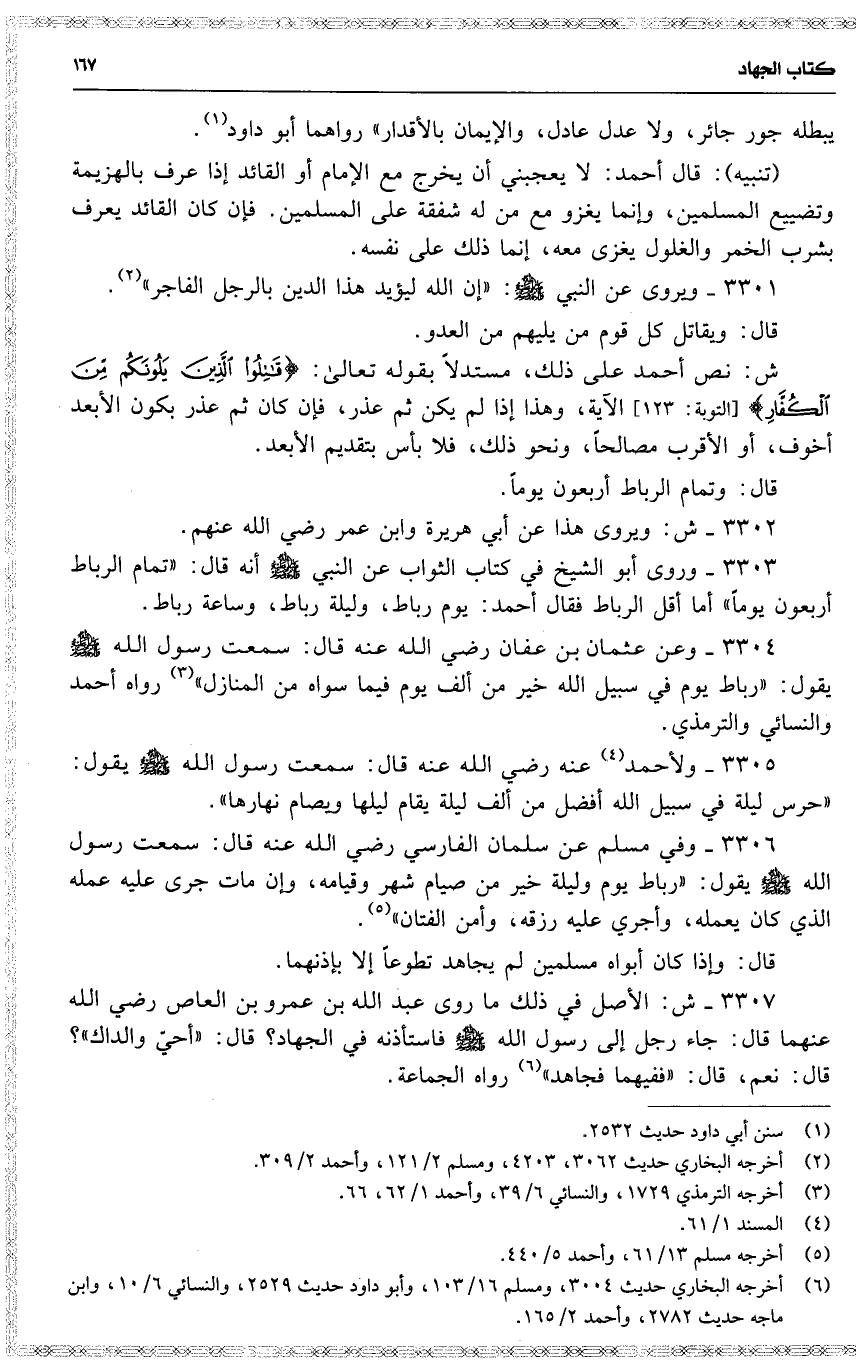 كتاب الجهاد ١٦٧
يبطله جور جائر، ولا عدل عادل، والإيمان بالأقدار» رواهما أبو داود(١).
(تنبيه): قال أحمد: لا يعجبني أن يخرج مع الإمام أو القائد إذا عرف بالهزيمة
وتضييع المسلمين، وإنما يغزو مع من له شفقة على المسلمين. فإن كان القائد يعرف
بشرب الخمر والغلول يغزى معه، إنما ذلك على نفسه.
٣٣٠١ ـ ويروى عن النبي ﷺ: «إن الله ليؤيد هذا الدين بالرجل الفاجر»(٢).
قال: ويقاتل كل قوم من يليهم من العدو.
ش: نص أحمد على ذلك، مستدلاً بقوله تعالىٰ: ﴿قَٰتِلُوا۟ ٱلَّذِينَ يَلُونَكُم مِّنَ
ٱلْكُفَّارِ﴾ [التوبة: ١٢٣] الآية، وهذا إذا لم يكن ثم عذر، فإن كان ثم عذر بكون الأبعد
أخوف، أو الأقرب مصالحاً، ونحو ذلك، فلا بأس بتقديم الأبعد.
قال: وتمام الرباط أربعون يوماً.
٣٣٠٢ ـ ش: ويروى هذا عن أبي هريرة وابن عمر رضي الله عنهم.
٣٣٠٣ ـ وروى أبو الشيخ في كتاب الثواب عن النبي ﷺ أنه قال: «تمام الرباط
أربعون يوماً» أما أقل الرباط فقال أحمد: يوم رباط، وليلة رباط، وساعة رباط.
٣٣٠٤ ـ وعن عثمان بن عفان رضي الله عنه قال: سمعت رسول الله ﷺ
يقول: «رباط يوم في سبيل الله خير من ألف يوم فيما سواه من المنازل»(٣) رواه أحمد
والنسائي والترمذي.
٣٣٠٥ ـ ولأحمد(٤) عنه رضي الله عنه قال: سمعت رسول الله ﷺ يقول:
«حرس ليلة في سبيل الله أفضل من ألف ليلة يقام ليلها ويصام نهارها».
٣٣٠٦ ـ وفي مسلم عن سلمان الفارسي رضي الله عنه قال: سمعت رسول
الله ﷺ يقول: «رباط يوم وليلة خير من صيام شهر وقيامه، وإن مات جرى عليه عمله
الذي كان يعمله، وأجري عليه رزقه، وأمن الفتان»(٥).
قال: وإذا كان أبواه مسلمين لم يجاهد تطوعاً إلا بإذنهما.
٣٣٠٧ ـ ش: الأصل في ذلك ما روى عبد الله بن عمرو بن العاص رضي الله
عنهما قال: جاء رجل إلى رسول الله ﷺ فاستأذنه في الجهاد؟ قال: «أحيّ والداك»؟
قال: نعم، قال: «ففيهما فجاهد»(٦) رواه الجماعة.
(١) سنن أبي داود حديث ٢٥٣٢.
(٢) أخرجه البخاري حديث ٣٠٦٢، ٤٢٠٣، ومسلم ٢/ ١٢١، وأحمد ٢/ ٣٠٩.
(٣) أخرجه الترمذي ١٧٢٩، والنسائي ٦/ ٣٩، وأحمد ١/ ٦٢، ٦٦.
(٤) المسند ١/ ٦١.
(٥) أخرجه مسلم ١٣/ ٦١، وأحمد ٥/ ٤٤٠.
(٦) أخرجه البخاري حديث ٣٠٠٤، ومسلم ١٦/ ١٠٣، وأبو داود حديث ٢٥٢٩، والنسائي ٦/ ١٠، وابن
ماجه حديث ٢٧٨٢، وأحمد ٢/ ١٦٥.